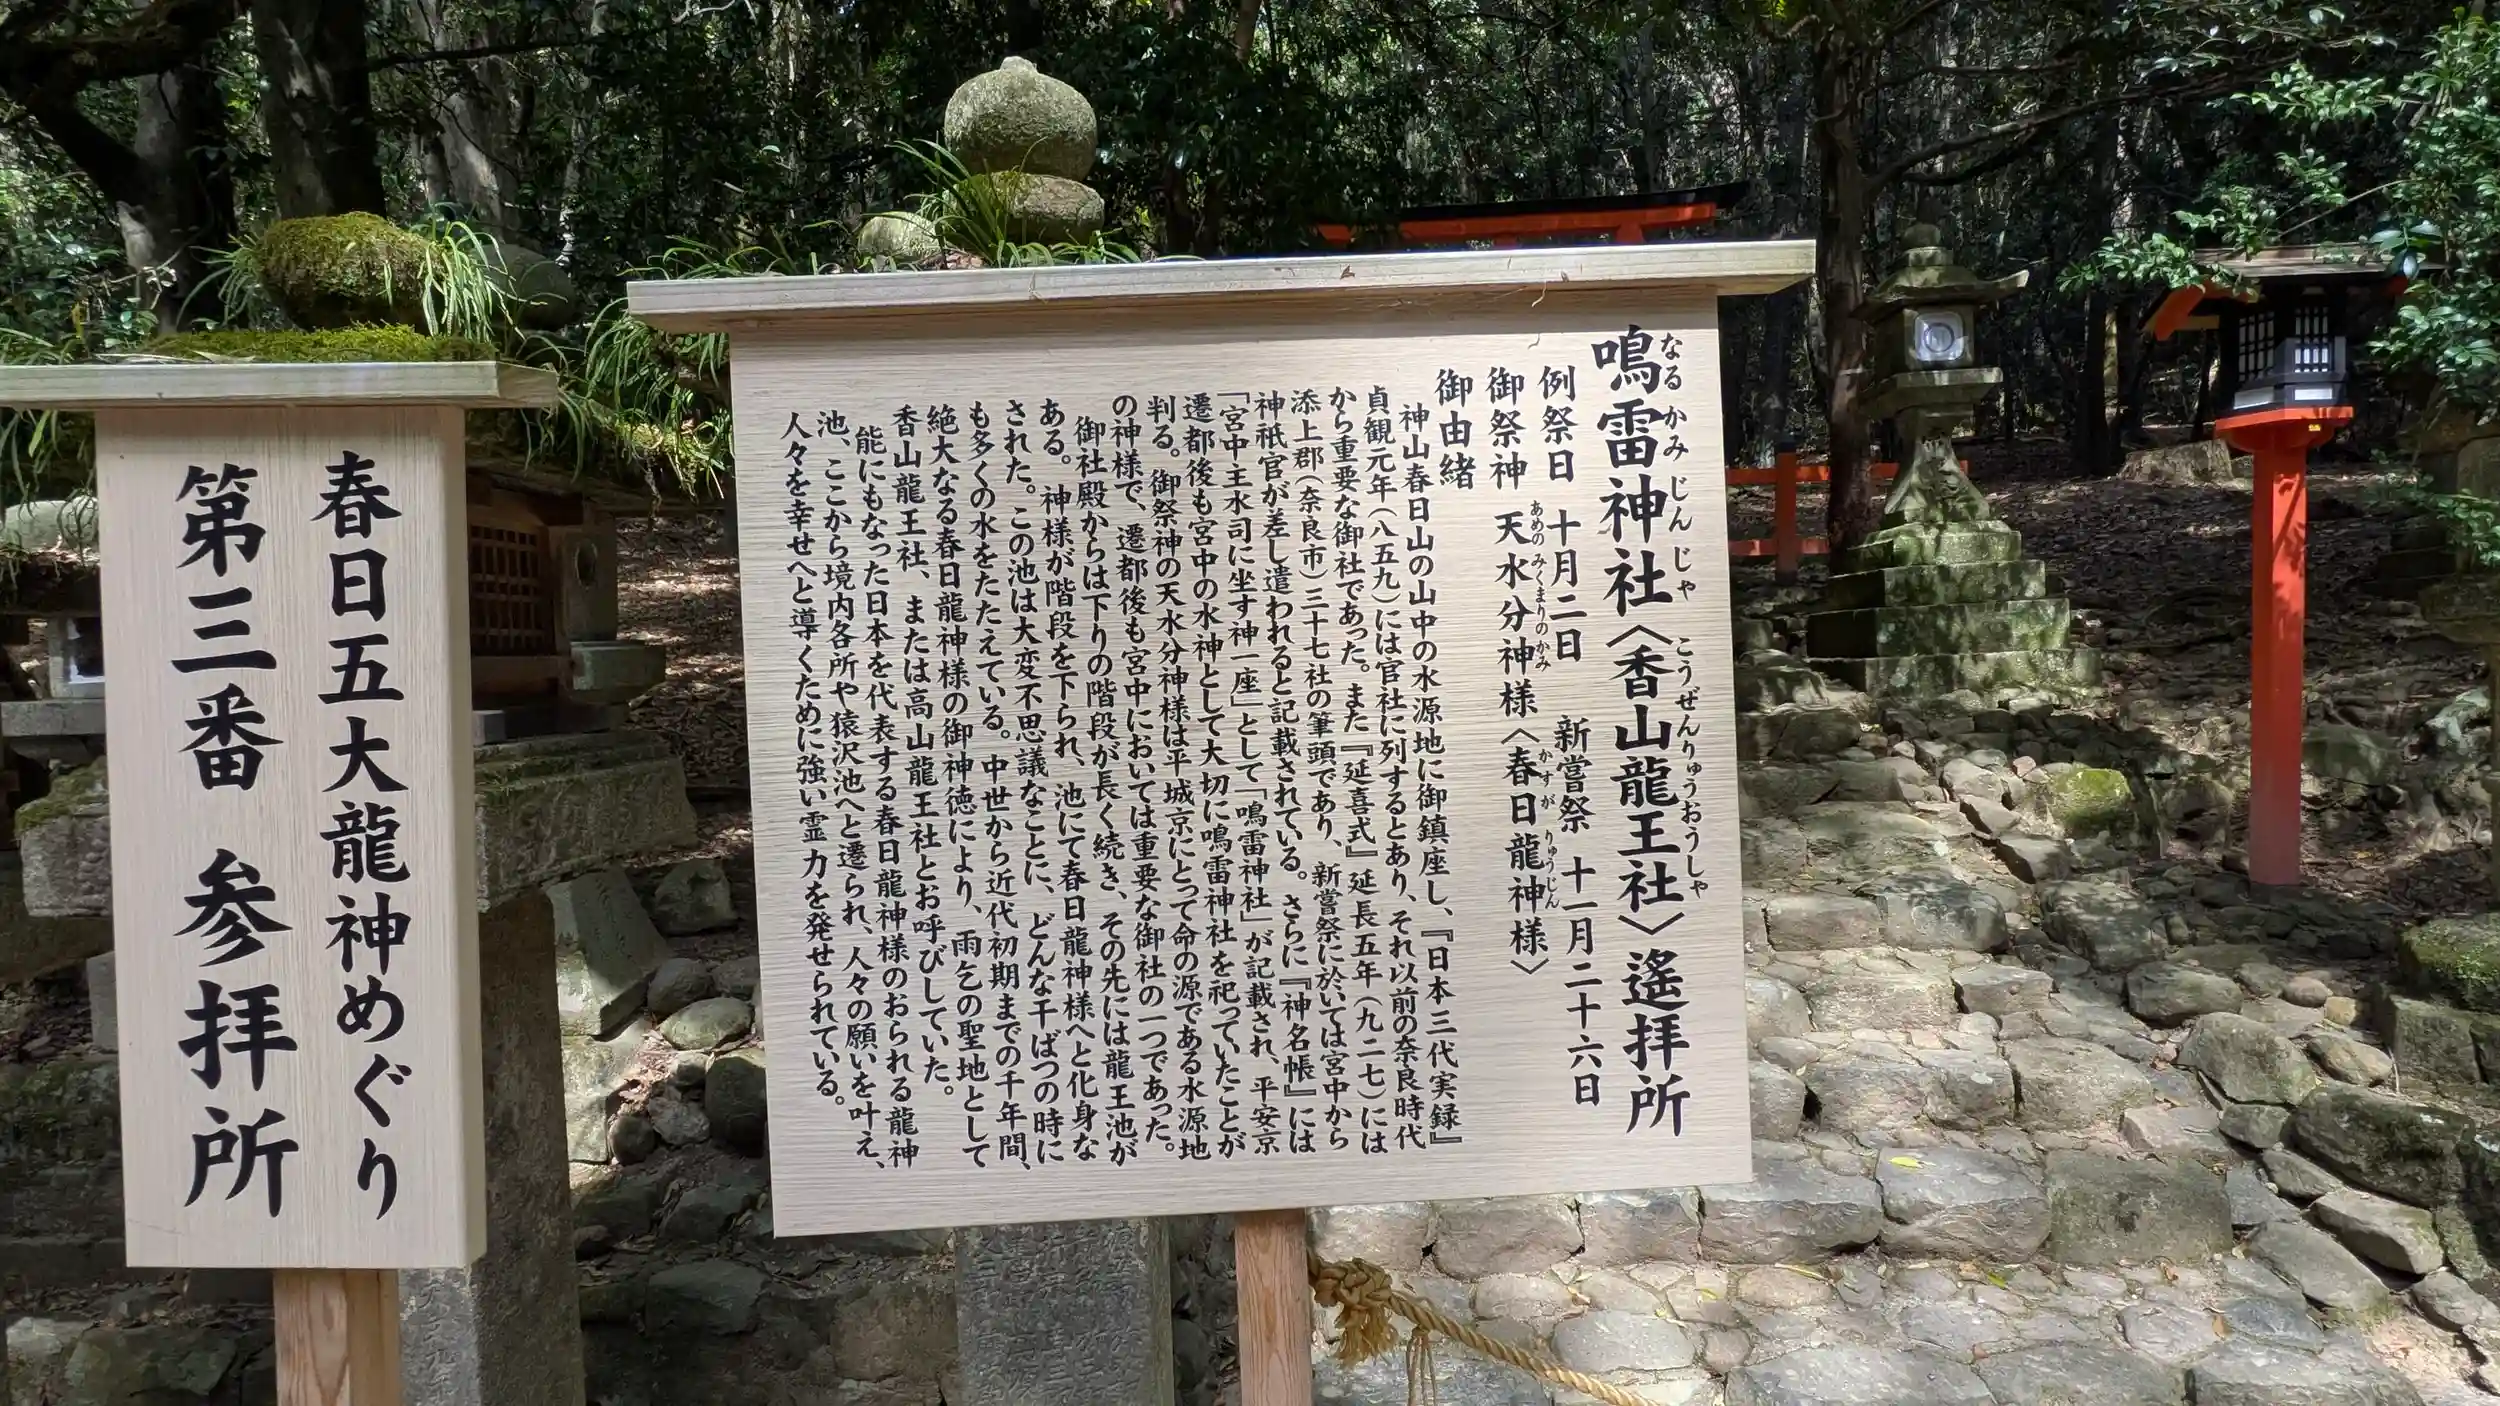 鳴雷神社〈香山龍王社〉遙拝所
なるかみじんじゃ こうぜんりゅうおうしゃ
例祭日 十月二日 新嘗祭 十一月二十六日
御祭神 天水分神様〈春日龍神様〉
あめのみくまりのかみ かすが りゅうじん
御由緒
神山春日山の山中の水源地に御鎮座し、『日本三代実録』
貞観元年(八五九)には官社に列するとあり、それ以前の奈良時代
から重要な御社であった。また『延喜式』延長五年(九二七)には
添上郡(奈良市)三十七社の筆頭であり、新嘗祭に於いては宮中から
神祇官が差し遣われると記載されている。さらに『神名帳』には
「宮中主水司に坐す神一座」として「鳴雷神社」が記載され、平安京
遷都後も宮中の水神として大切に鳴雷神社を祀っていたことが
判る。御祭神の天水分神様は平城京にとって命の源である水源地
の神様で、遷都後も宮中においては重要な御社の一つであった。
御社殿からは下りの階段が長く続き、その先には龍王池が
ある。神様が階段を下られ、池にて春日龍神様へと化身な
された。この池は大変不思議なことに、どんな干ばつの時に
も多くの水をたたえている。中世から近代初期までの千年間、
絶大なる春日龍神様の御神徳により、雨乞の聖地として
香山龍王社、または高山龍王社とお呼びしていた。
能にもなった日本を代表する春日龍神様のおられる龍神
池、ここから境内各所や猿沢池へと遷られ、人々の願いを叶え、
人々を幸せへと導くために強い霊力を発せられている。
春日五大龍神めぐり
第三番 参拝所